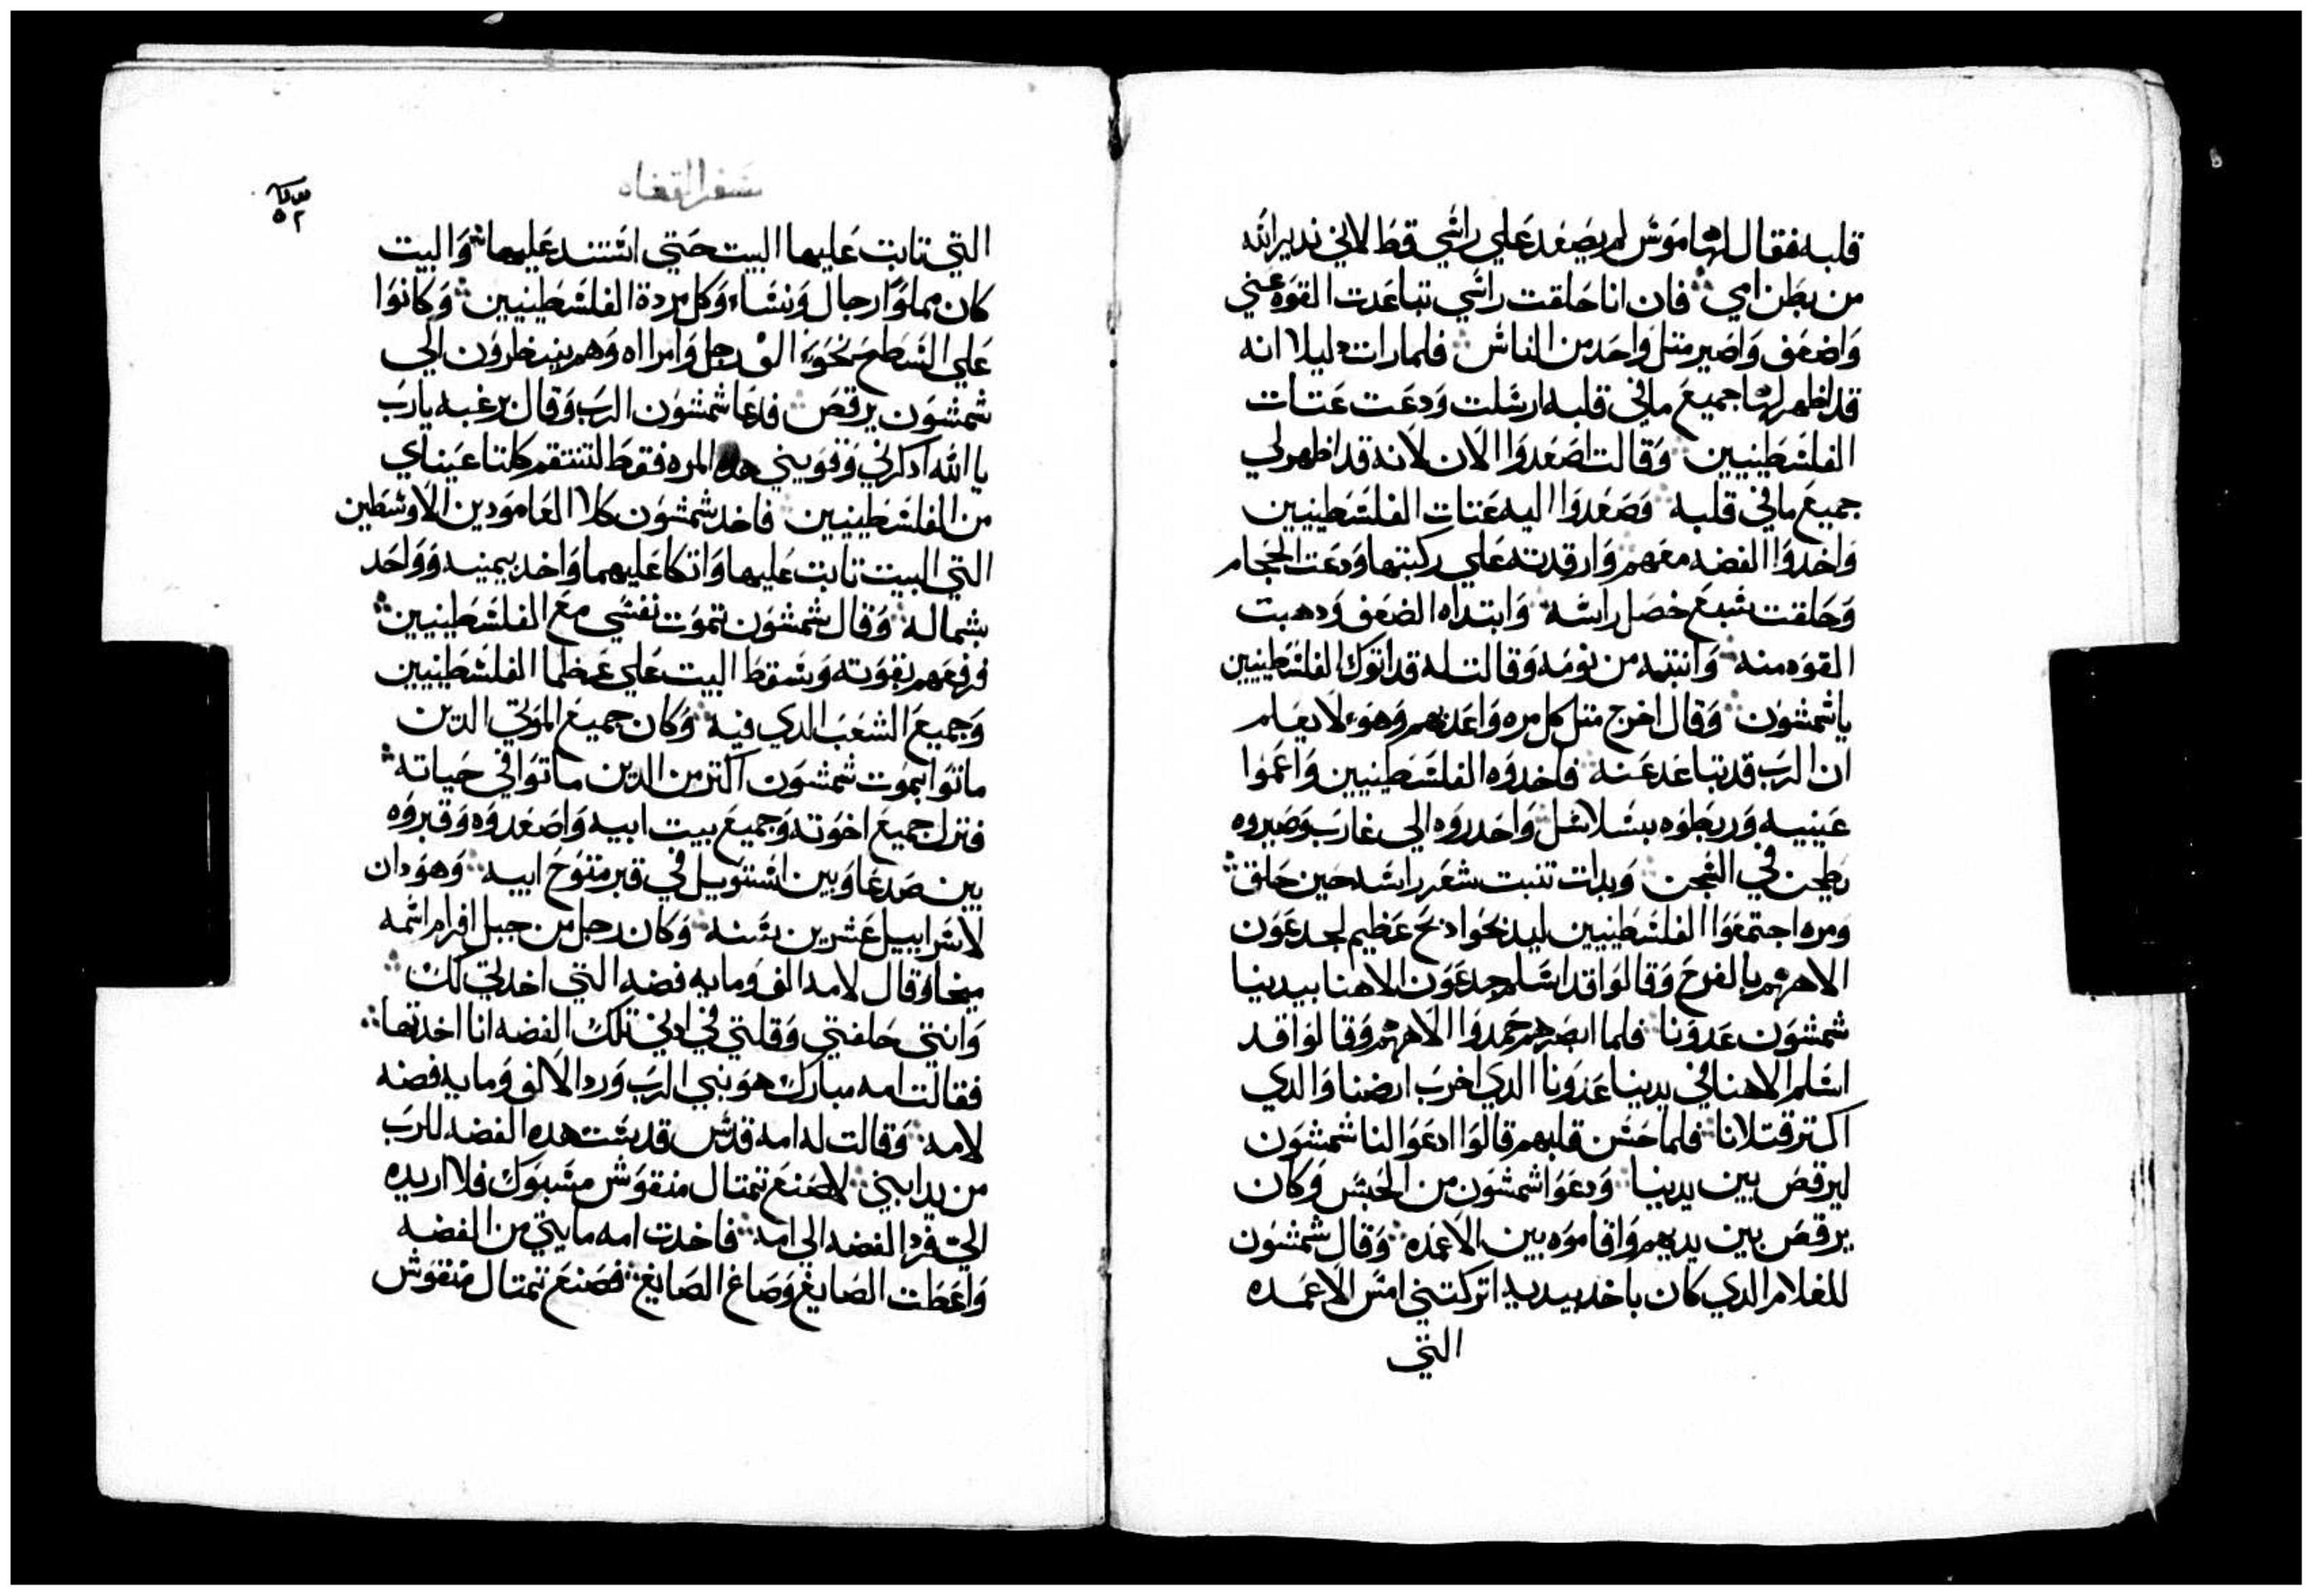 قلبه فقال لها موس لم يصعد على راسي قط لاني ندير الله
من بطن امي فان انا حلقت راسي تباعدت القوه عني
واضعف واصير متل واحد من الناس فلما رات دليلا انه
قد اظهر لها جميع ما في قلبه ارسلت ودعت عتات
الفلسطينيين وقالت اصعدوا الان لانه قد اظهر لي
جميع ما في قلبه وصعدوا اليه عتات الفلسطينيين
واخدوا الفضه معهم وارقدته علي ركبتها ودعت الحجام
وحلقت سبع خصل راسه وابتداه الضعف ودهبت
القوه منه وانتبه من نومه وقالت له قد اتوك الفلسطينيين
يا شمشون وقال اخرج متل كل مره واعدبهم وهو لا يعلم
ان الرب قد تباعد عنه فاخدوه الفلسطينيين واعموا
عينيه وربطوه بسلاسل واحدروه الي غازب وصيروه
يطحن في السجن وبدات تنبت شعر راسه حين حلق
ومره اجتمعوا الفلسطينيين ليدبحوا دبح عظيم لجدعون
الاههم بالفرح وقالوا قد اسلم جدعون الاهنا بيدينا
شمشون عدونا فلما ابصرهم حمدوا الاههم وقالوا قد
اسلم الاهنا في يدينا عدونا الدي اخرب ارضنا والدي
اكتر قتلانا فلما حسن قلبهم قالوا ادعوا لنا شمشون
ليرقص بين يدينا ودعوا شمشون من الحبس وكان
يرقص بين يديهم واقاموه بين الاعمده وقال شمشون
للغلام الدي كان ياخد بيديه اتركني امس الاعمده
التي
سفر القضاه
٥٢
التي تابت عليها البيت حتي استند عليها والبيت
كان مملوا رجال ونساء وكل مردة الفلسطينيين وكانوا
علي السطح نحو الف رجل وامراه وهم ينظرون الي
شمشون يرقص فدعا شمشون الرب وقال برغبه يا رب
يا الله ادكرني وقويني هده المره فقط لتنتقم كلتا عيناي
من الفلسطينيين فاخد شمشون كلا العامودين الاوسطين
التي البيت تابت عليها واتكا عليهما واخد بيمنيه وواحد
بشماله وقال شمشون تموت نفسي مع الفلسطينيين
ورفعهم بقوته وسقط البيت علي عظما الفلسطينيين
وجميع الشعب الدي فيه وكان جميع الموتي الدين
ماتوا بموت شمشون اكتر من الدين ماتوا في حياته
فنزل جميع اخوته وجميع بيت ابيه واصعدوه وقبروه
بين صدعا وبين استويل في قبر منوح ابيه وهو دان
لاسراييل عشرين سنه وكان رجل من جبل افرام اسمه
ميخا وقال لامه الف ومايه فضه التي اخدتي لك
وانتي حلفتي وقلتي في ادني تلك الفضه انا اخدتها
فقالت امه مبارك هو بني الرب ورد الالف ومايه فضه
لامه وقالت له امه قدس قدست هده الفضه للرب
من يد ابني لاصنع تمتال منقوش مسبوك فلا اريده
الي فرد الفضه الي امه فاخدت امه مايتي من الفضه
واعطت الصايغ وصاغ الصايغ فصنع تمتال منقوش